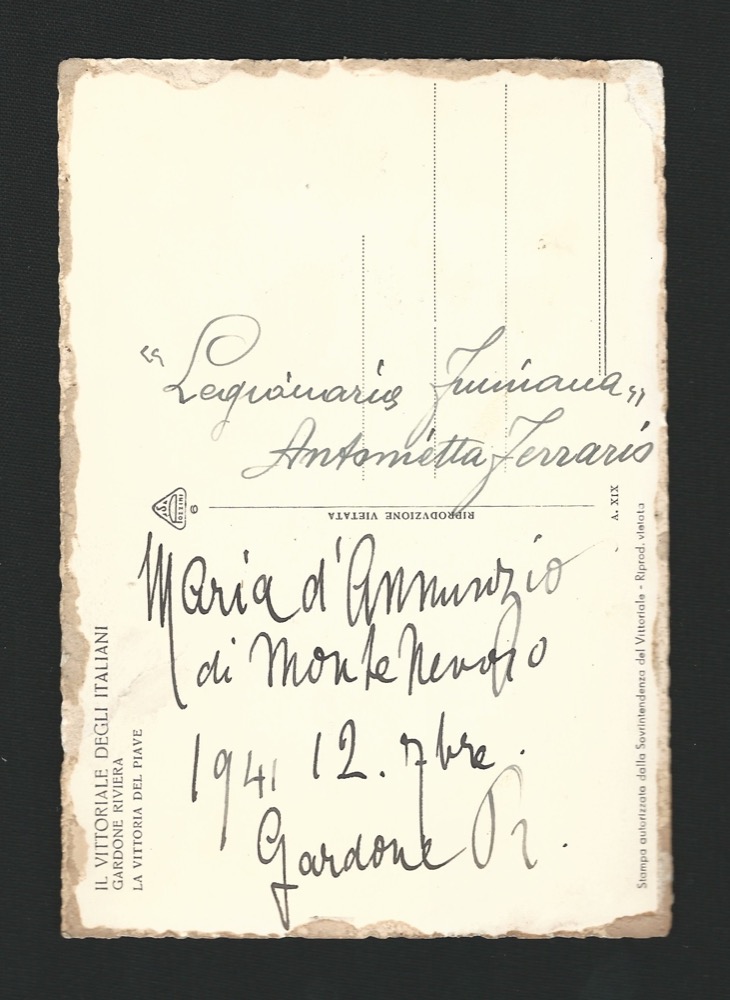 „Legionaria Fiumana„
Antonietta Ferraris
6
RIPRODVZIONE VIETATA
A. XIX
Maria d'Annunzio
di Monte Nevoso
1941 12. 7bre.
Gardone R.
IL VITTORIALE DEGLI ITALIANI
GARDONE RIVIERA
LA VITTORIA DEL PIAVE
Stampa autorizzata dalla Sovrintendenza del Vittoriale - Riprod. vietata